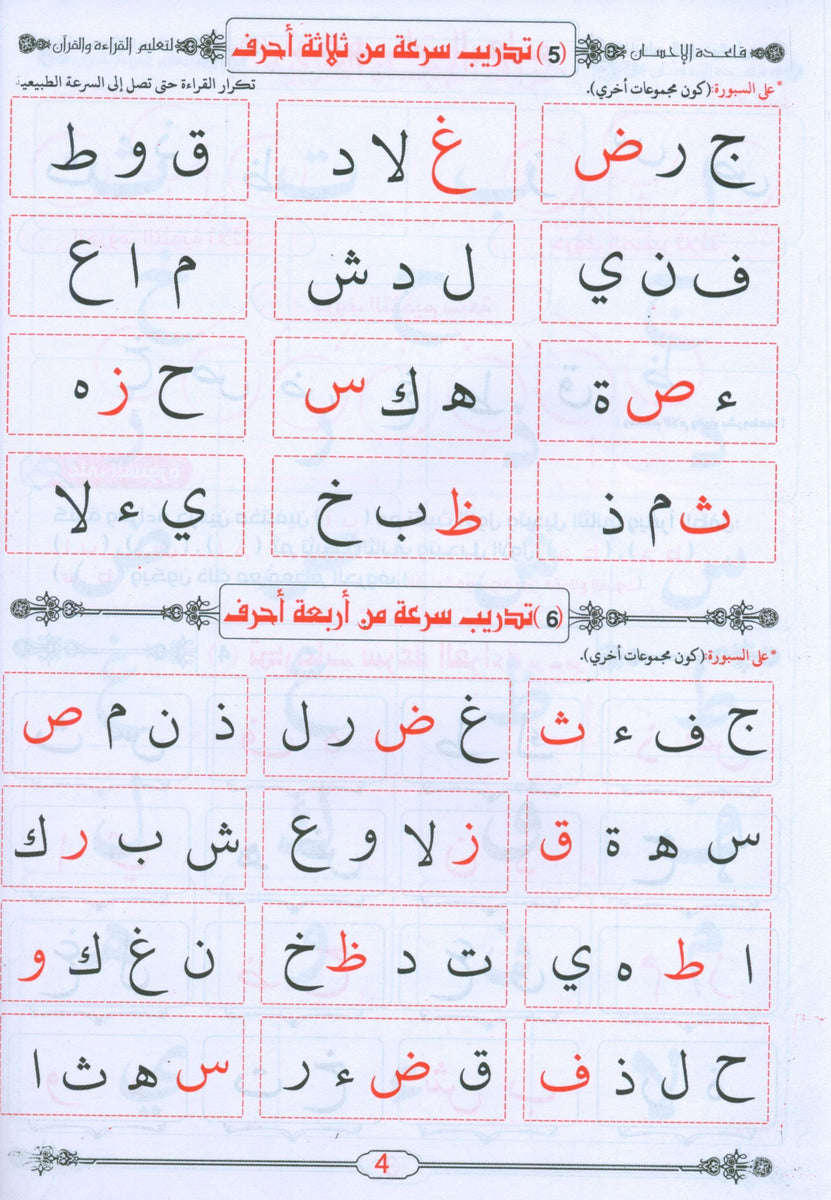 قاعدة الإحسان (5) تدريب سرعة من ثلاثة أحرف لتعليم القراءة والقرآن
* على السبورة: (كون مجموعات أخري). تكرار القراءة حتى تصل إلى السرعة الطبيعية
ج ر ض غ لا د ق و ط
ف ن ي ل د ش م ا ع
ء ص ة ه ك س ح ز ه
ث م ذ ظ ب خ ي ء لا
(6) تدريب سرعة من أربعة أحرف
* على السبورة: (كون مجموعات أخري).
ج ف ء ث غ ض ر ل ذ ن م ص
س ه ة ق ز لا و ع ش ب ر ك
ا ط ه ي ت د ظ خ ن غ ك و
ح ل ذ ف ق ض ء ر س ه ث ا
4